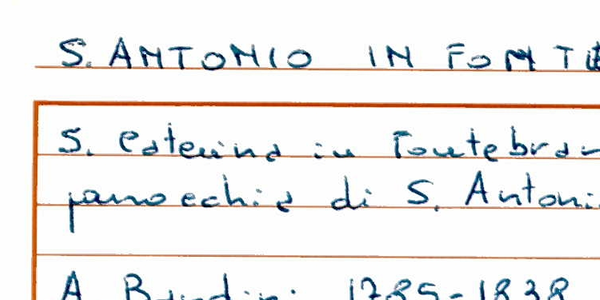 S. ANTONIO IN FONTE
S. Caterina in Fontebran
parrocchia di S. Antoni
A. Bandini 1785-1838